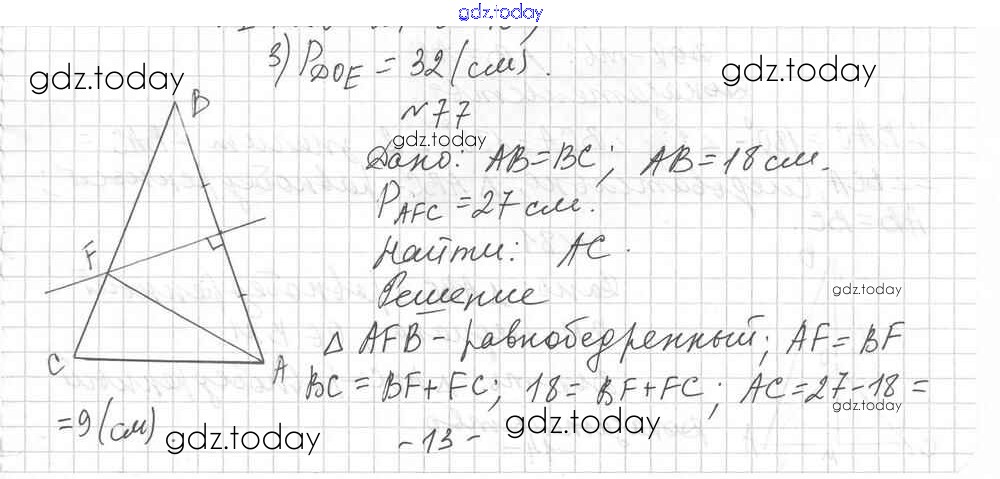 gdz.today
3) P_DOE = 32 (см).
gdz.today
gdz.today
B
№77
gdz.today
Дано: AB = BC; AB = 18 см.
P_AFC = 27 см.
F
Найти: AC.
gdz.today
Решение
C
A
Δ AFB - равнобедренный; AF = BF
BC = BF + FC; 18 = BF + FC; AC = 27 - 18 =
gdz.today
= 9 (см)
gdz.today
- 13 -
gdz.today